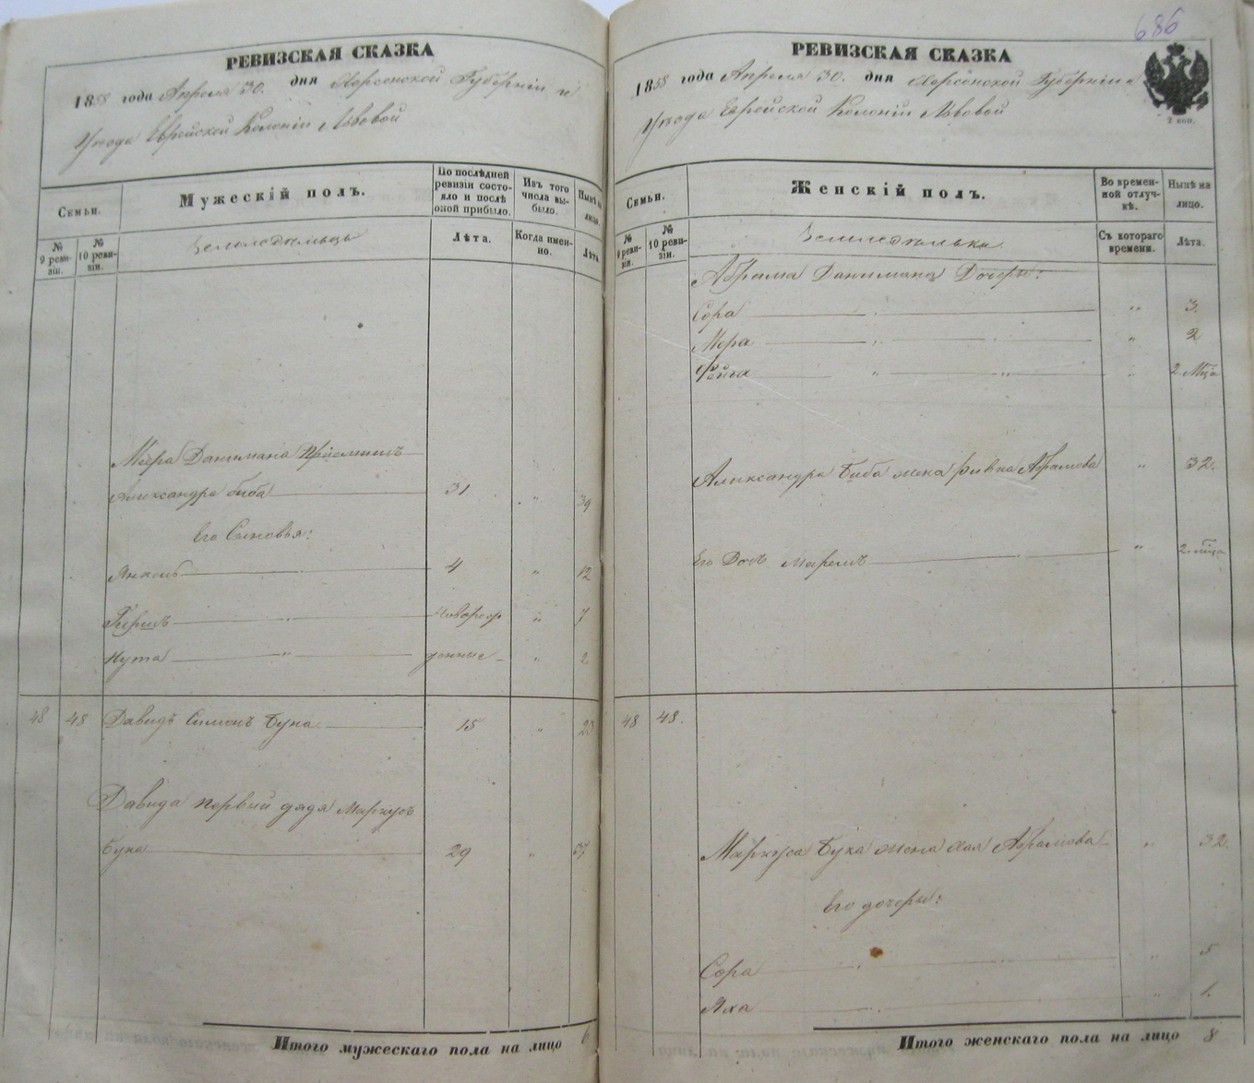 РЕВИЗСКАЯ СКАЗКА
1858 года Апреля 30. дня Херсонской Губерніи и
Уезда Еврейской Колоніи Львовой
Семьи.
Мужескій полъ.
По послѣдней ревизіи состояло и послѣ оной прибыло.
Изъ того числа выбыло.
Нынѣ на лицо.
№ 9 ревизіи.
№ 10 ревизіи.
Земледельцы
Лѣта.
Когда именно.
Лѣта.
Меера Данимана
Александръ Биба 31 " 39
Его Сыновья:
Янкель 4 " 12
Гершъ Новорож " 7
Нута " денные " 2
48 48 Давидъ Симонъ Бука 15 " 23
Давида первый дядя Маркусъ
Бука 29 " 37
Итого мужескаго пола на лицо 6
686
РЕВИЗСКАЯ СКАЗКА
1858 года Апреля 30. дня Херсонской Губерніи и
Уезда Еврейской Колоніи Львовой
2 коп.
Семьи.
Женскій полъ.
Во временной отлучкѣ.
Нынѣ на лицо.
№ 9 ревизіи.
№ 10 ревизіи.
Земледельки
Съ котораго времени.
Лѣта.
Абрама Данимана Дочери:
Сора " " 3.
Мера " " " 2
Фейга " " " 2 Мѣца
Александра Биба жена Ривка Абрамова " 32.
Его Дочь Мирель " 2 мѣца
48 48.
Маркуса Бука жена Хая Абрамова " 32.
Его дочери:
Сора " " 5
Яха " " 1.
Итого женскаго пола на лицо 8